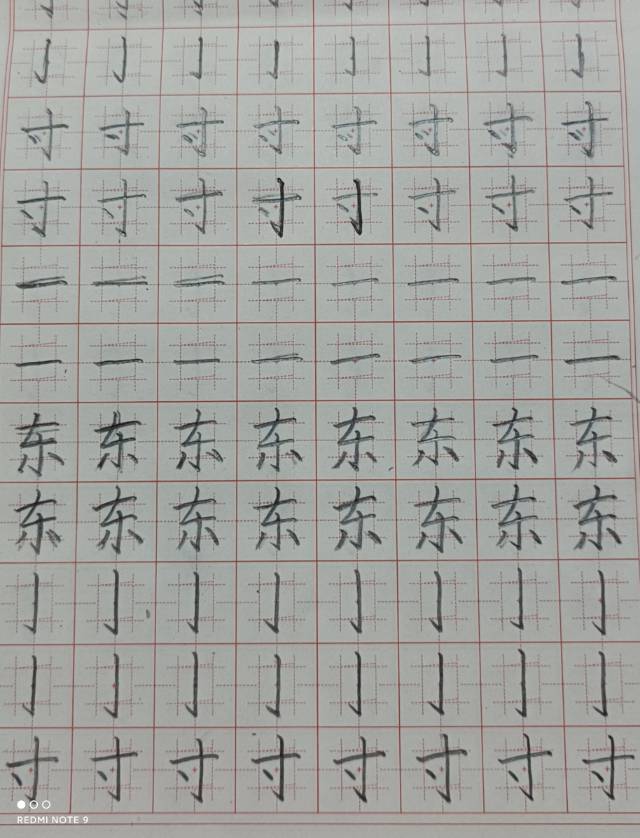 亅亅亅亅亅亅亅亅
寸寸寸寸寸寸寸寸
寸寸寸寸寸寸寸寸
一一一一一一一一
一一一一一一一一
东东东东东东东东
东东东东东东东东
亅亅亅亅亅亅亅亅
亅亅亅亅亅亅亅亅
寸寸寸寸寸寸寸寸
REDMI NOTE 9